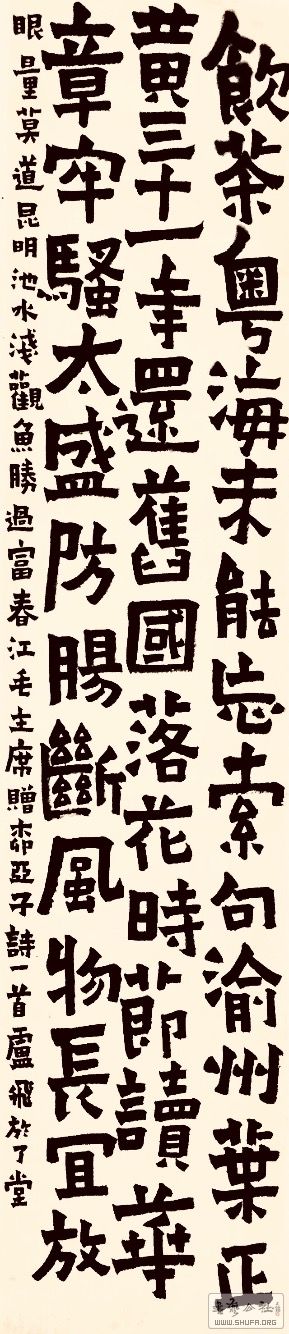 飲茶粤海未能忘索句渝州葉正
黄三十一年還舊國落花時節讀華
章牢騷太盛防腸斷風物長宜放
眼量莫道昆明池水淺觀魚勝過富春江毛主席贈柳亞子詩一首盧飛於了堂
WWW.SHUFA.ORG